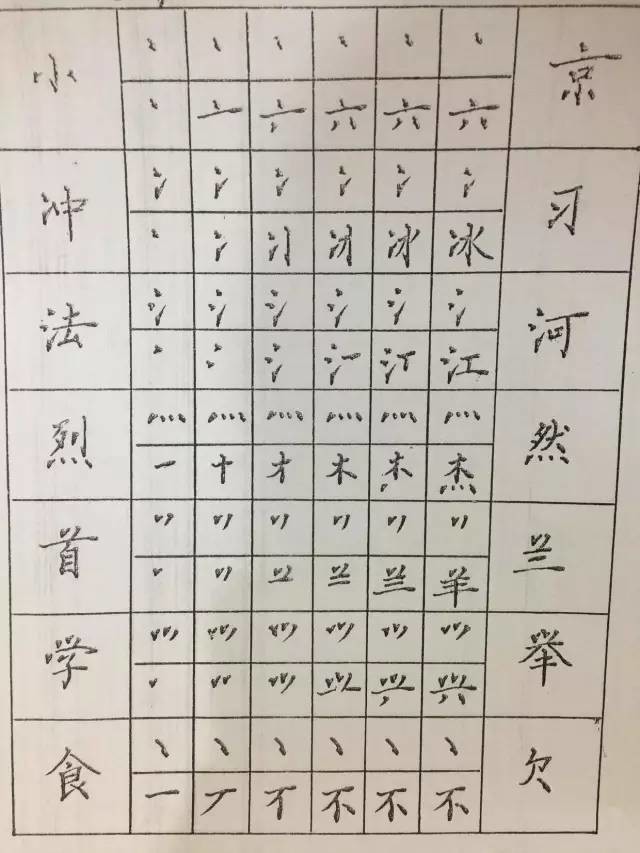 小 丶 丶 丶 丶 丶 丶 京
丶 亠 六 六 六
冲 冫 冫 冫 冫 冫 冫 习
丶 冫 冰 冰
法 氵 氵 氵 氵 氵 氵 河
丶 冫 氵 汀 江
烈 灬 灬 灬 灬 灬 灬 然
一 十 才 木 杰
首 丷 丷 丷 丷 丷 丷 兰
丶 丷 兰 羊
学 ⺍ ⺍ ⺍ ⺍ ⺍ ⺍ 举
丶 ⺍ 兴
食 丶 丶 丶 丶 丶 丶 欠
一 丆 不 不 不